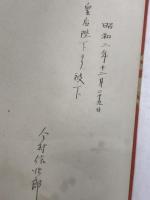 昭和二年十二月二十五日
皇后陛下ヨリ被下
今村信次郎